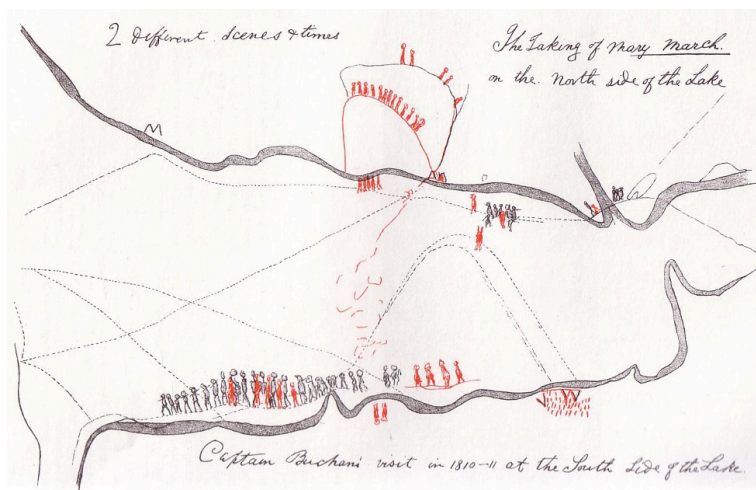 2 Different Scenes & times
The Taking of Mary March.
on the North side of the Lake
Captain Buchans visit in 1810-11 at the South Side of the Lake.